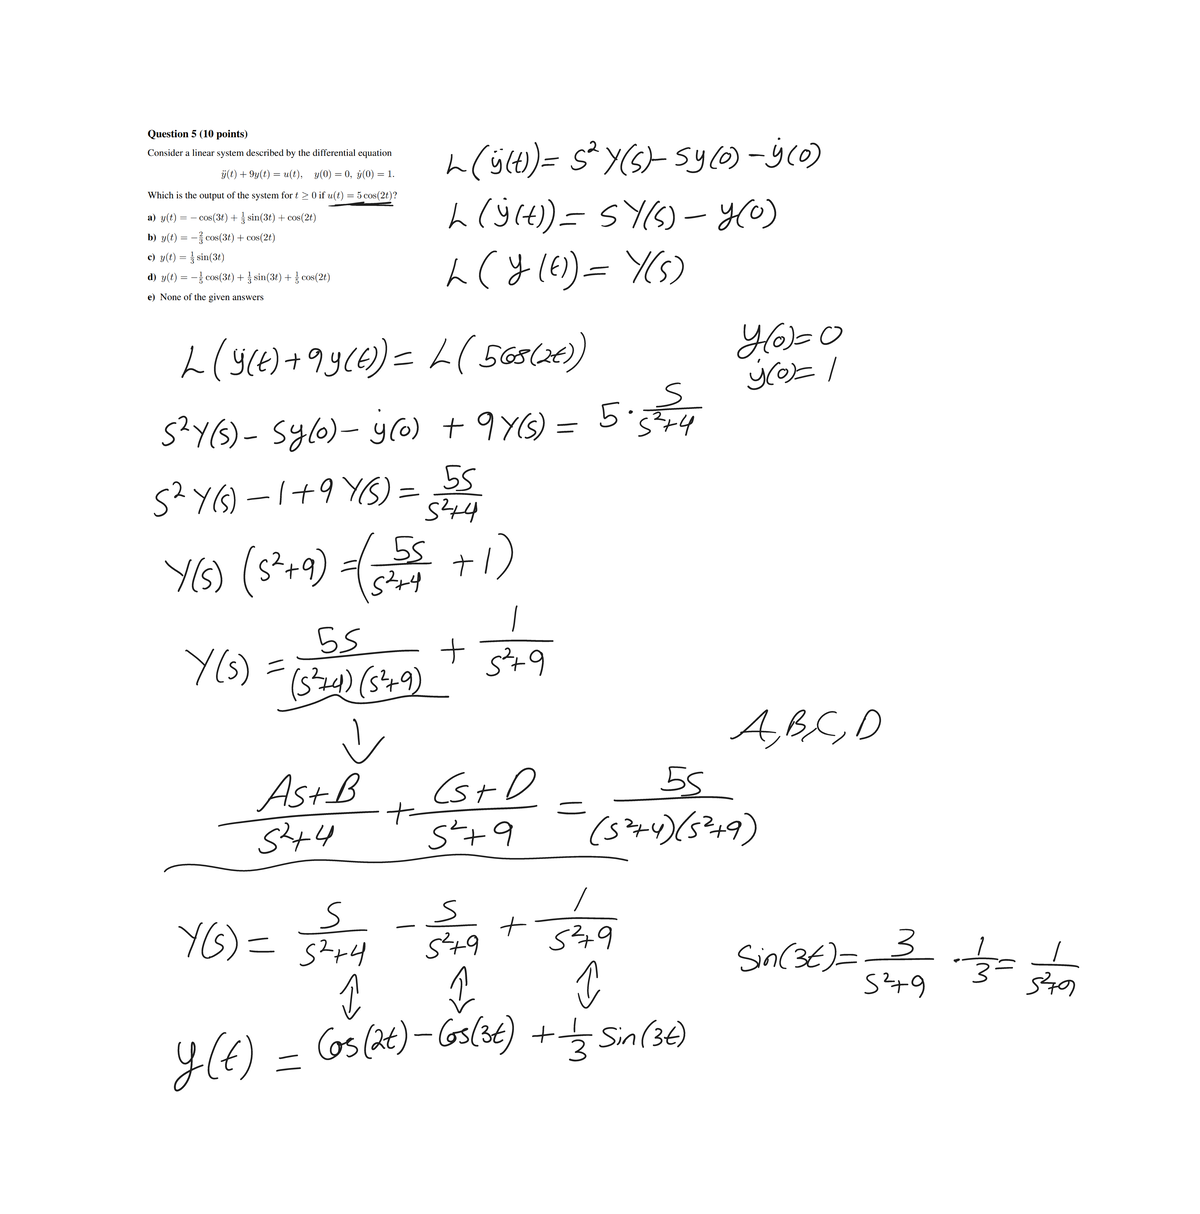 Question 5 (10 points)
Consider a linear system described by the differential equation
ÿ(t) + 9y(t) = u(t), y(0) = 0, ẏ(0) = 1.
Which is the output of the system for t ≥ 0 if u(t) = 5 cos(2t)?
a) y(t) = − cos(3t) + 1/3 sin(3t) + cos(2t)
b) y(t) = −2/3 cos(3t) + cos(2t)
c) y(t) = 1/3 sin(3t)
d) y(t) = −1/5 cos(3t) + 1/3 sin(3t) + 1/5 cos(2t)
e) None of the given answers
L(ÿ(t)) = S² Y(s) - Sy(0) - ẏ(0)
L(ẏ(t)) = S Y(s) - y(0)
L(y(t)) = Y(s)
L(ÿ(t) + 9y(t)) = L(5Cos(2t))
y(0) = 0
ẏ(0) = 1
S²Y(s) - Sy(0) - ẏ(0) + 9Y(s) = 5 · S/(S²+4)
S²Y(s) - 1 + 9Y(s) = 5S/(S²+4)
Y(s) (S²+9) = (5S/(S²+4) + 1)
Y(s) = 5S/((S²+4)(S²+9)) + 1/(S²+9)
A, B, C, D
(As+B)/(S²+4) + (Cs+D)/(S²+9) = 5S/((S²+4)(S²+9))
Y(s) = S/(S²+4) - S/(S²+9) + 1/(S²+9)
Sin(3t) = 3/(S²+9) · 1/3 = 1/(S²+9)
y(t) = Cos(2t) - Cos(3t) + 1/3 Sin(3t)